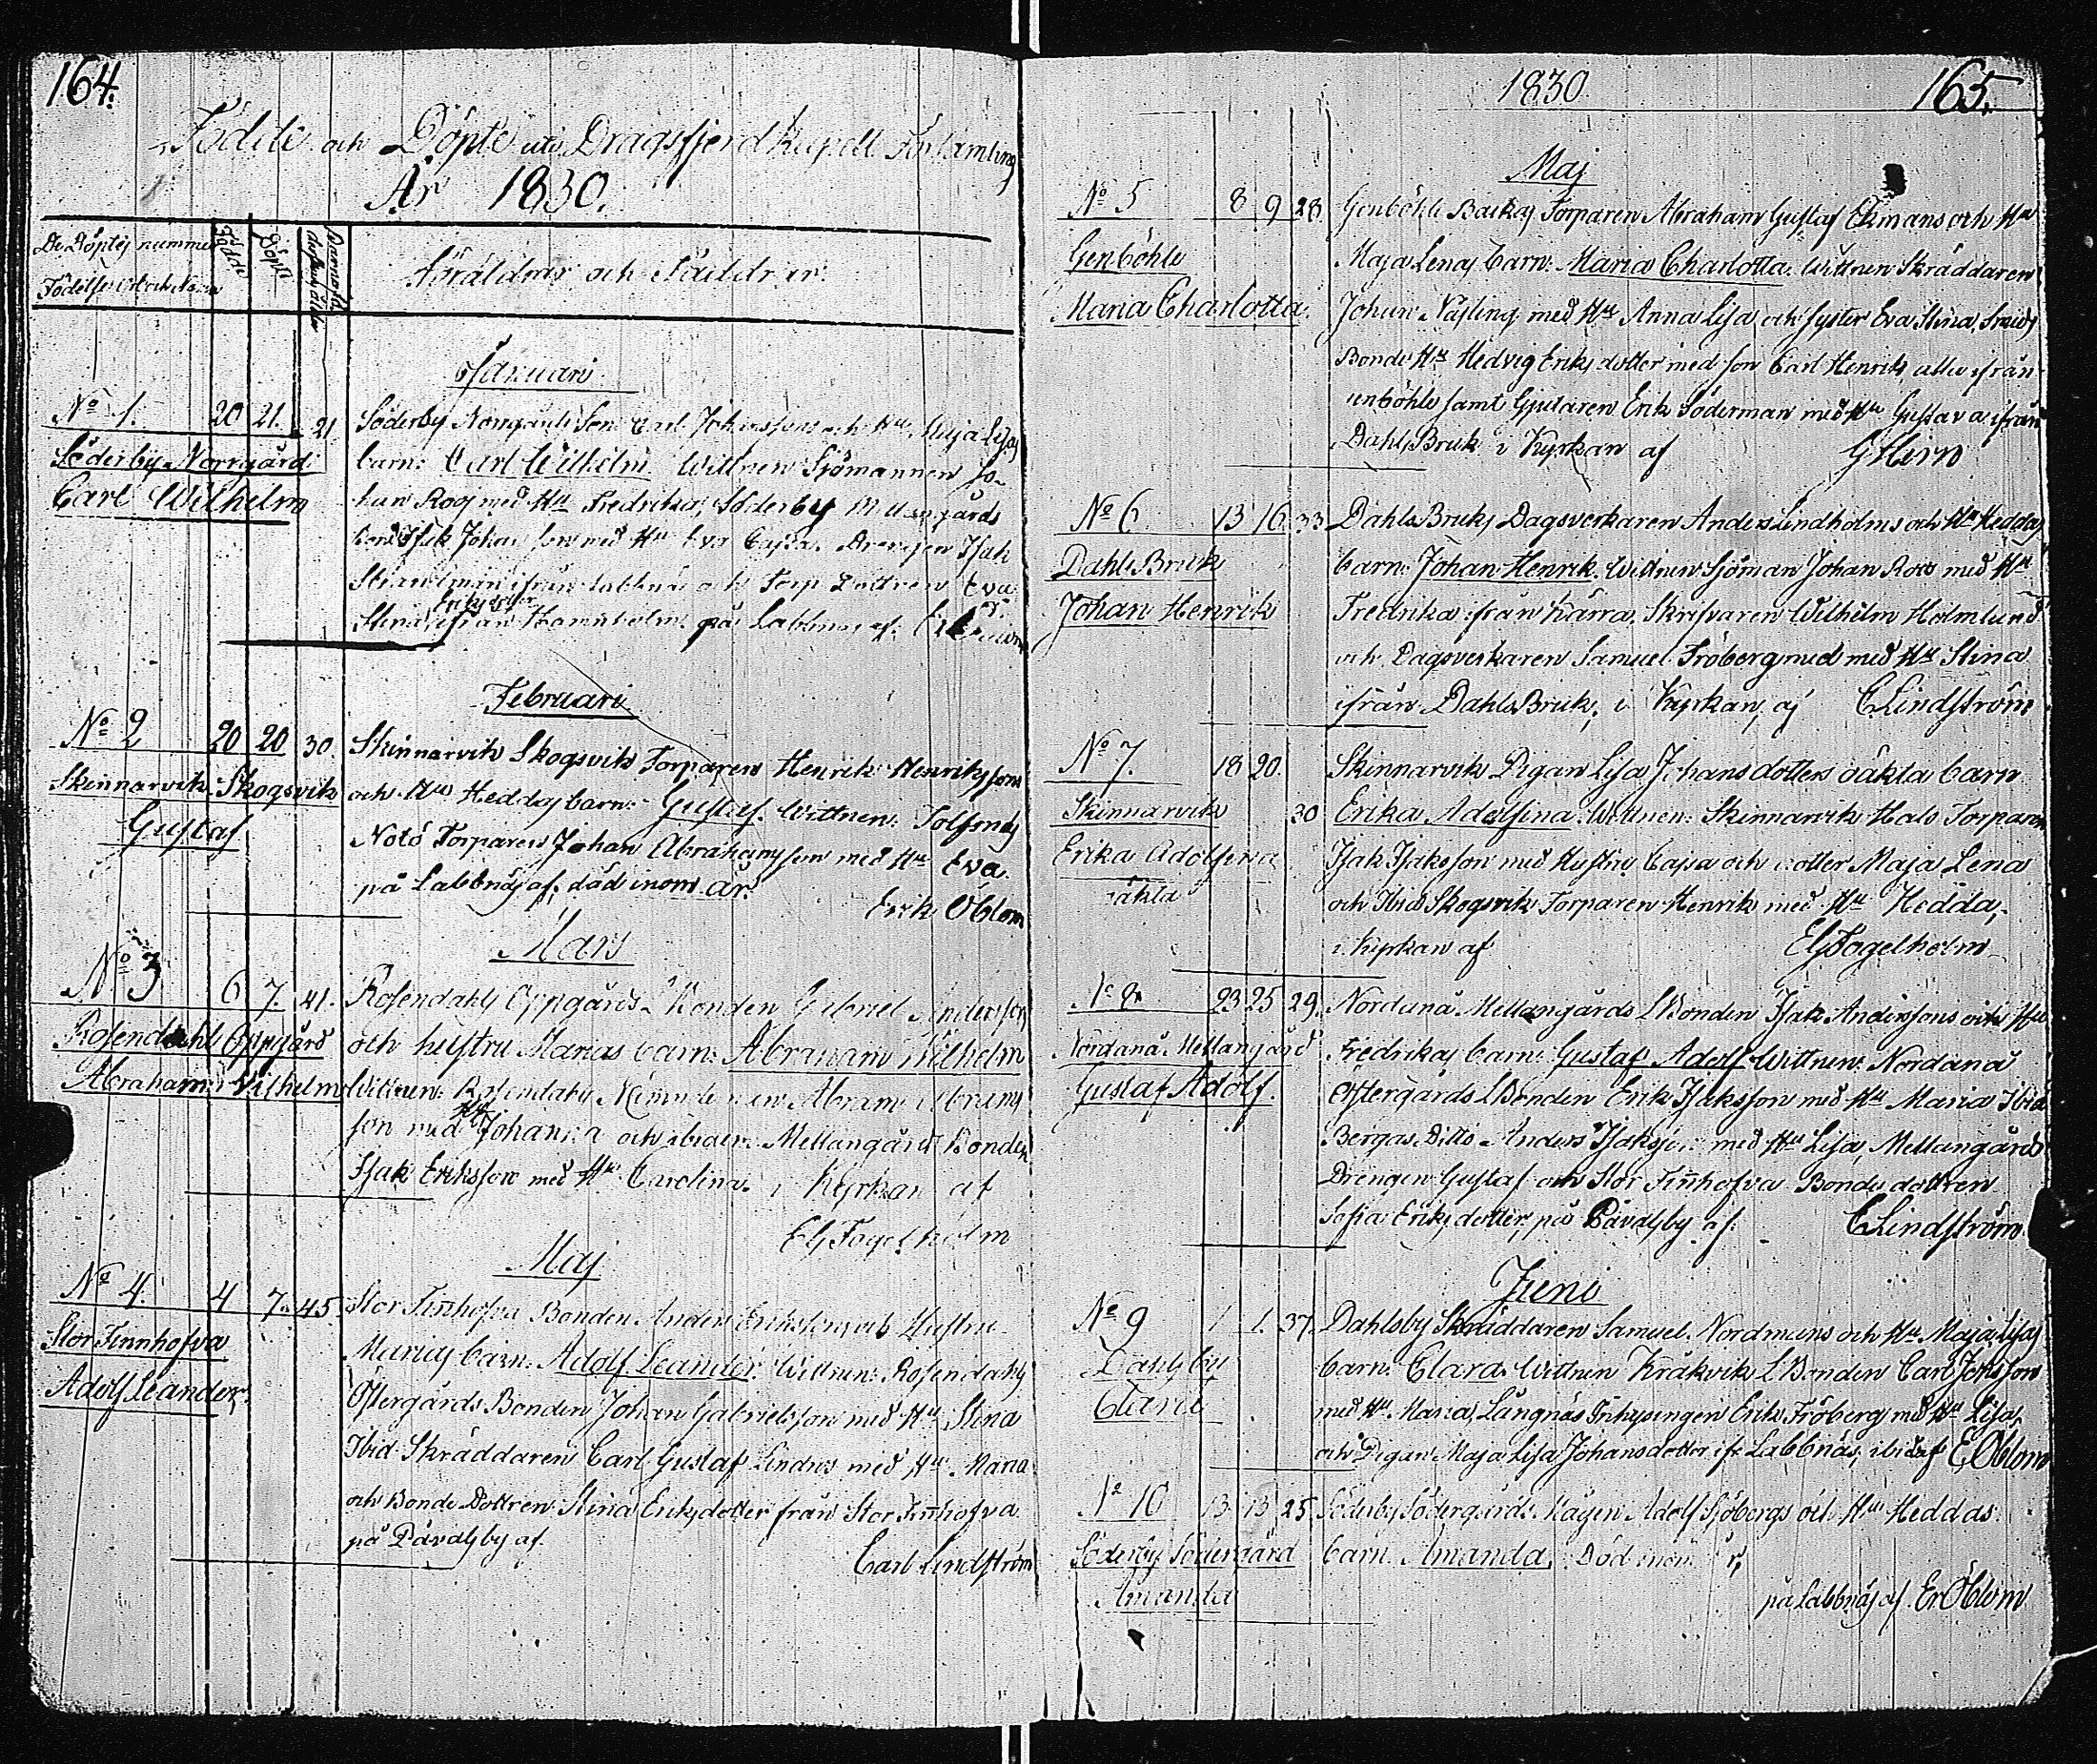 164.
Födde och Döpte uti Dragsfjerd Kapell Församling
År 1830.
De Döptes nummer
Födelse ort och Namn
Födde
Döpte
Barnaföderskans ålder
Föräldrar och Faddrar
Januari
No 1. 20 21. 21
Söderby Norrgård
Carl Wilhelm
Söderby Norrgårds Son Carl Johanssons och Hu Maja Lisas
barn: Carl Wilhelm. Wittnen Sjömannen Jo-
han Roos med Hu Fredrika, Söderby Mellangårds
Bond Isak Johansson med Hu Eva Cajsa. Drengen Isak
ifrån Labbnäs och Torp Dottren Eva
Stina Eriksdotter ifrån Hammholm på Labbnäs af:
Februari
No 2 20 20 30.
Skinnarvik Skogsvik
Gustaf
Skinnarvik Skogsvik Torparen Henrik Henrikssons
och Hu Heddas barn: Gustaf. Wittnen: Tolfsnäs
Notö Torparen Johan Abrahamsson med Hu Eva.
på Labbnäs af; död inom år.
Erik Öblom
Mars
No 3 6 7. 41.
Rosendahl Oppgård
Abraham Wilhelm
Rosendahls Oppgårds Bonden Gabriel Anderssons
och hustru Marias barn: Abraham Wilhelm
Wittnen: Rosendahls Abram Abrams
son med Hu Johanna och ibidem Mellangård Bonden
Isak Eriksson med Hu Carolina. i Kyrkan af
Elj Fogelholm
Maj
No 4. 4 7. 45.
Stor Finnhofva
Adolf Leander.
Stor Finnhofva Bonden Anders Erikssons och Hustru
Marias barn: Adolf Leander. Wittnen: Rosendahls
Östergårds Bonden Johan Gabrielsson med Hu Stina
Ibid Skräddaren Carl Gustaf Lindros med Hu Maria
och Bonde Dottren Stina Eriksdotter från Stor Finnhofva
på Dävalsby af.
Carl Lindström
1830.
165.
Maj
No 5 8 9 28
Genböhle
Maria Charlotta.
Genböhle Backas Torparen Abraham Gustaf Ekmans och Hu
Maja Lenas barn: Maria Charlotta. Wittnen Skräddaren
Johan Näsling med Hu Anna Lisa och syster Eva Stina,
Bonde Hu Hedvig Eriks dotter med son Carl Henrik, alla ifrån
enböhle samt Gjutaren Erik Söderman med Hu Gustava ifrån
Dahls Bruk i Kyrkan af G Hirn
No 6 13 16 33
Dahls Bruk
Johan Henrik
Dahls Bruks Dagsverkaren Anders Lindholms och Hu Heddas
barn: Johan Henrik. Wittnen Sjöman Johan Roos med Hu
Fredrika ifrån Kärra, Skrifvaren Wilhelm Holmlund
och Dagsverkaren Samuel Fröberg med med Hu Stina
ifrån Dahls Bruk, i Kyrkan, af C Lindström
No 7. 18 20.
Skinnarvik 30
Erika Adolfina
oäkta
Skinnarvik Pigan Lisa Johansdotters oäkta barn
Erika Adolfina. Wittnen: Skinnarvik Hals Torparen
Isak Isaksson med Hustru Cajsa och dotter Maja Lena
och Ibid Skogsvik Torparen Henrik med Hu Hedda,
i Kyrkan af Elj Fogelholm
No 8. 23 25 29.
Nordanå Mellangård
Gustaf Adolf.
Nordanå Mellangårds L Bonden Isak Anderssons och Hu
Fredrikas barn: Gustaf Adolf Wittnen: Nordanå
Östergårds L Bonden Erik Isaksson med Hu Maria Ibid
Bergas Ditto Anders Isaksson med Hu Lisa, Mellangårds
Drengen Gustaf och Stor Finnhofva Bonde dottren
Sofia Eriks dotter, på Dävalsby af: C Lindström
Juni
No 9 1 1. 37.
Dahlsby
Clara
Dahlsby Skräddaren Samuel Nordmans och Hu Maja Lisas
barn: Clara. Wittnen Kråkvik L Bonden Carl Johsson
med Hu Maria, Långnäs Inhysingen Erik Fröberg med Hu Lisa,
och Pigan Maja Lisa Johansdotter ifr Labbnäs; ibid af E Öblom
No 10 13 13 25
Söderby Södergård
Amanda
Söderby Södergårds Mågen Adolf Sjöbergs och Hu Heddas
barn. Amanda, Död inom år,
på Labbnäs af. Er Öblom